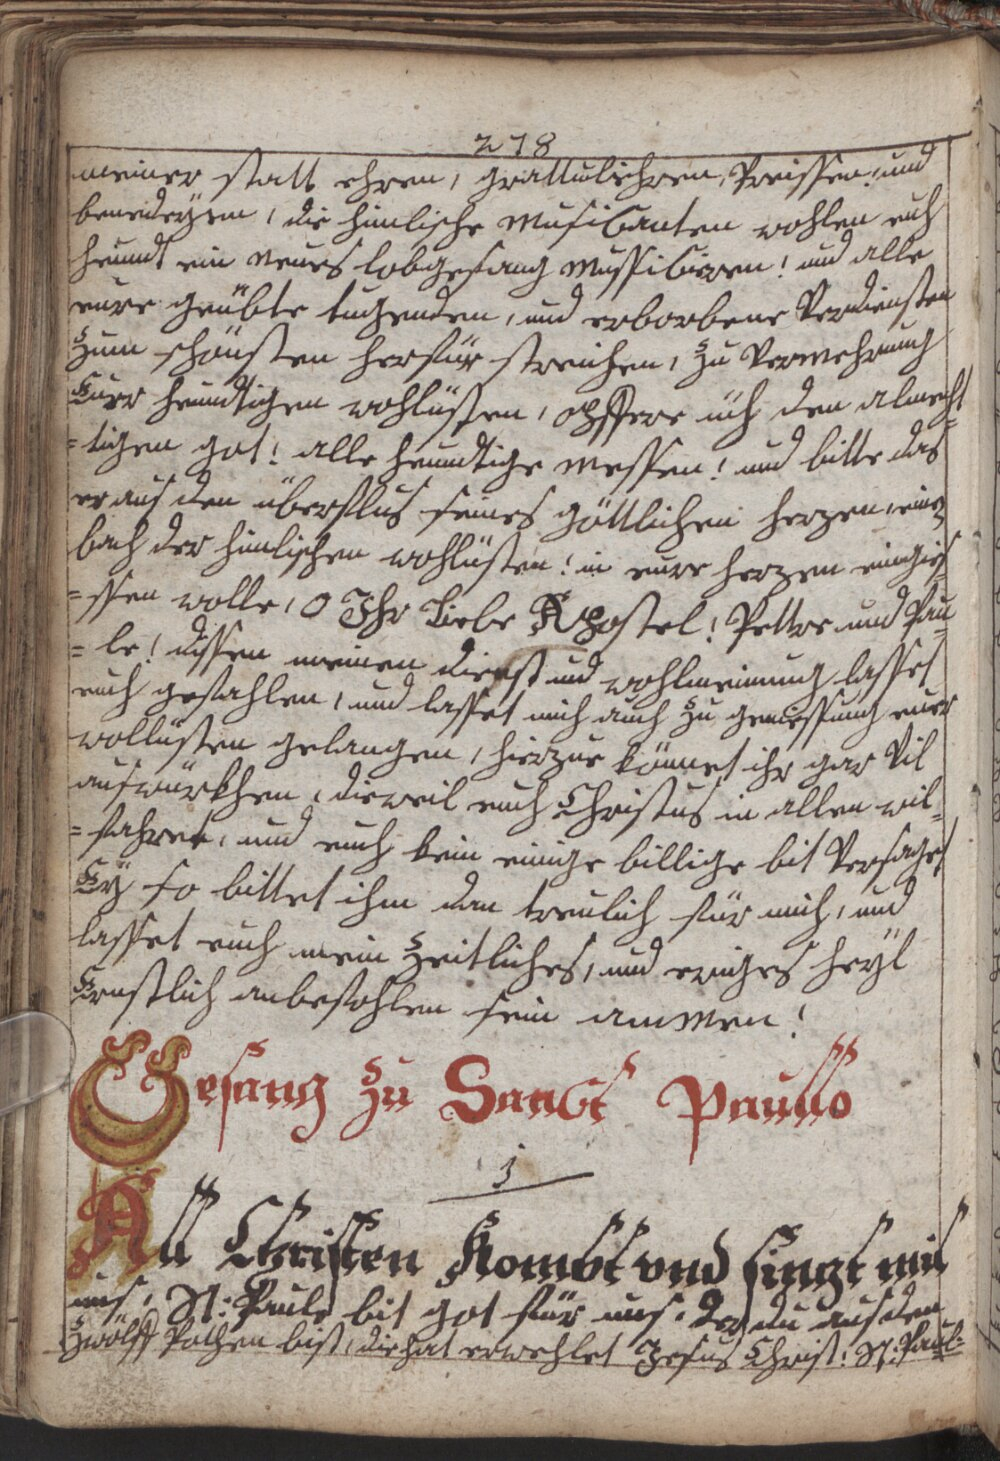 278
meiner statt ehren, grattulihren, Preissen, und
benedeyen, die himlische Musicanten wohlen euch
heundt ein neues lobgesang mussiciren! und alle
eure geübte tugenden, und erworbene Verdiensten
zum schönsten herfür streichen, zu Vermehrung
Euer heundtigen wohlüsten, opffere ich den almech-
=tigen got! alle heundtige messen! und bitte das
er aus den überflus seines göttlichen herzen, einen
bach der himlischen wohlüsten! in eure herzen eingies-
=ssen wolle, O Ihr liebe Apostel! Pettre und Pau-
=le! dissen meinen dienst und wohlmeinung lasset
euch gefahlen, und lasset mich auch zu geniessung eurer
wollüsten gelangen, hierzue könnet ihr gar Vil
auswürkhen, dieweil euch Christus in allen wil-
=fahret, und euch kein einige billige bit Versaget
Ey so bittet ihm dan treulich für mich, und
lasset euch mein zeitliches, und ewiges heyl
Ernstlich anbefohlen sein ammen!
Gesang zu Sanct Paullo
1
All Christen Kombt und singt mit
uns, St: Paule bit got für uns. der du aus den
zwölff Pothen bist, die hat erwehlet Jesus Christ: St: Paul: